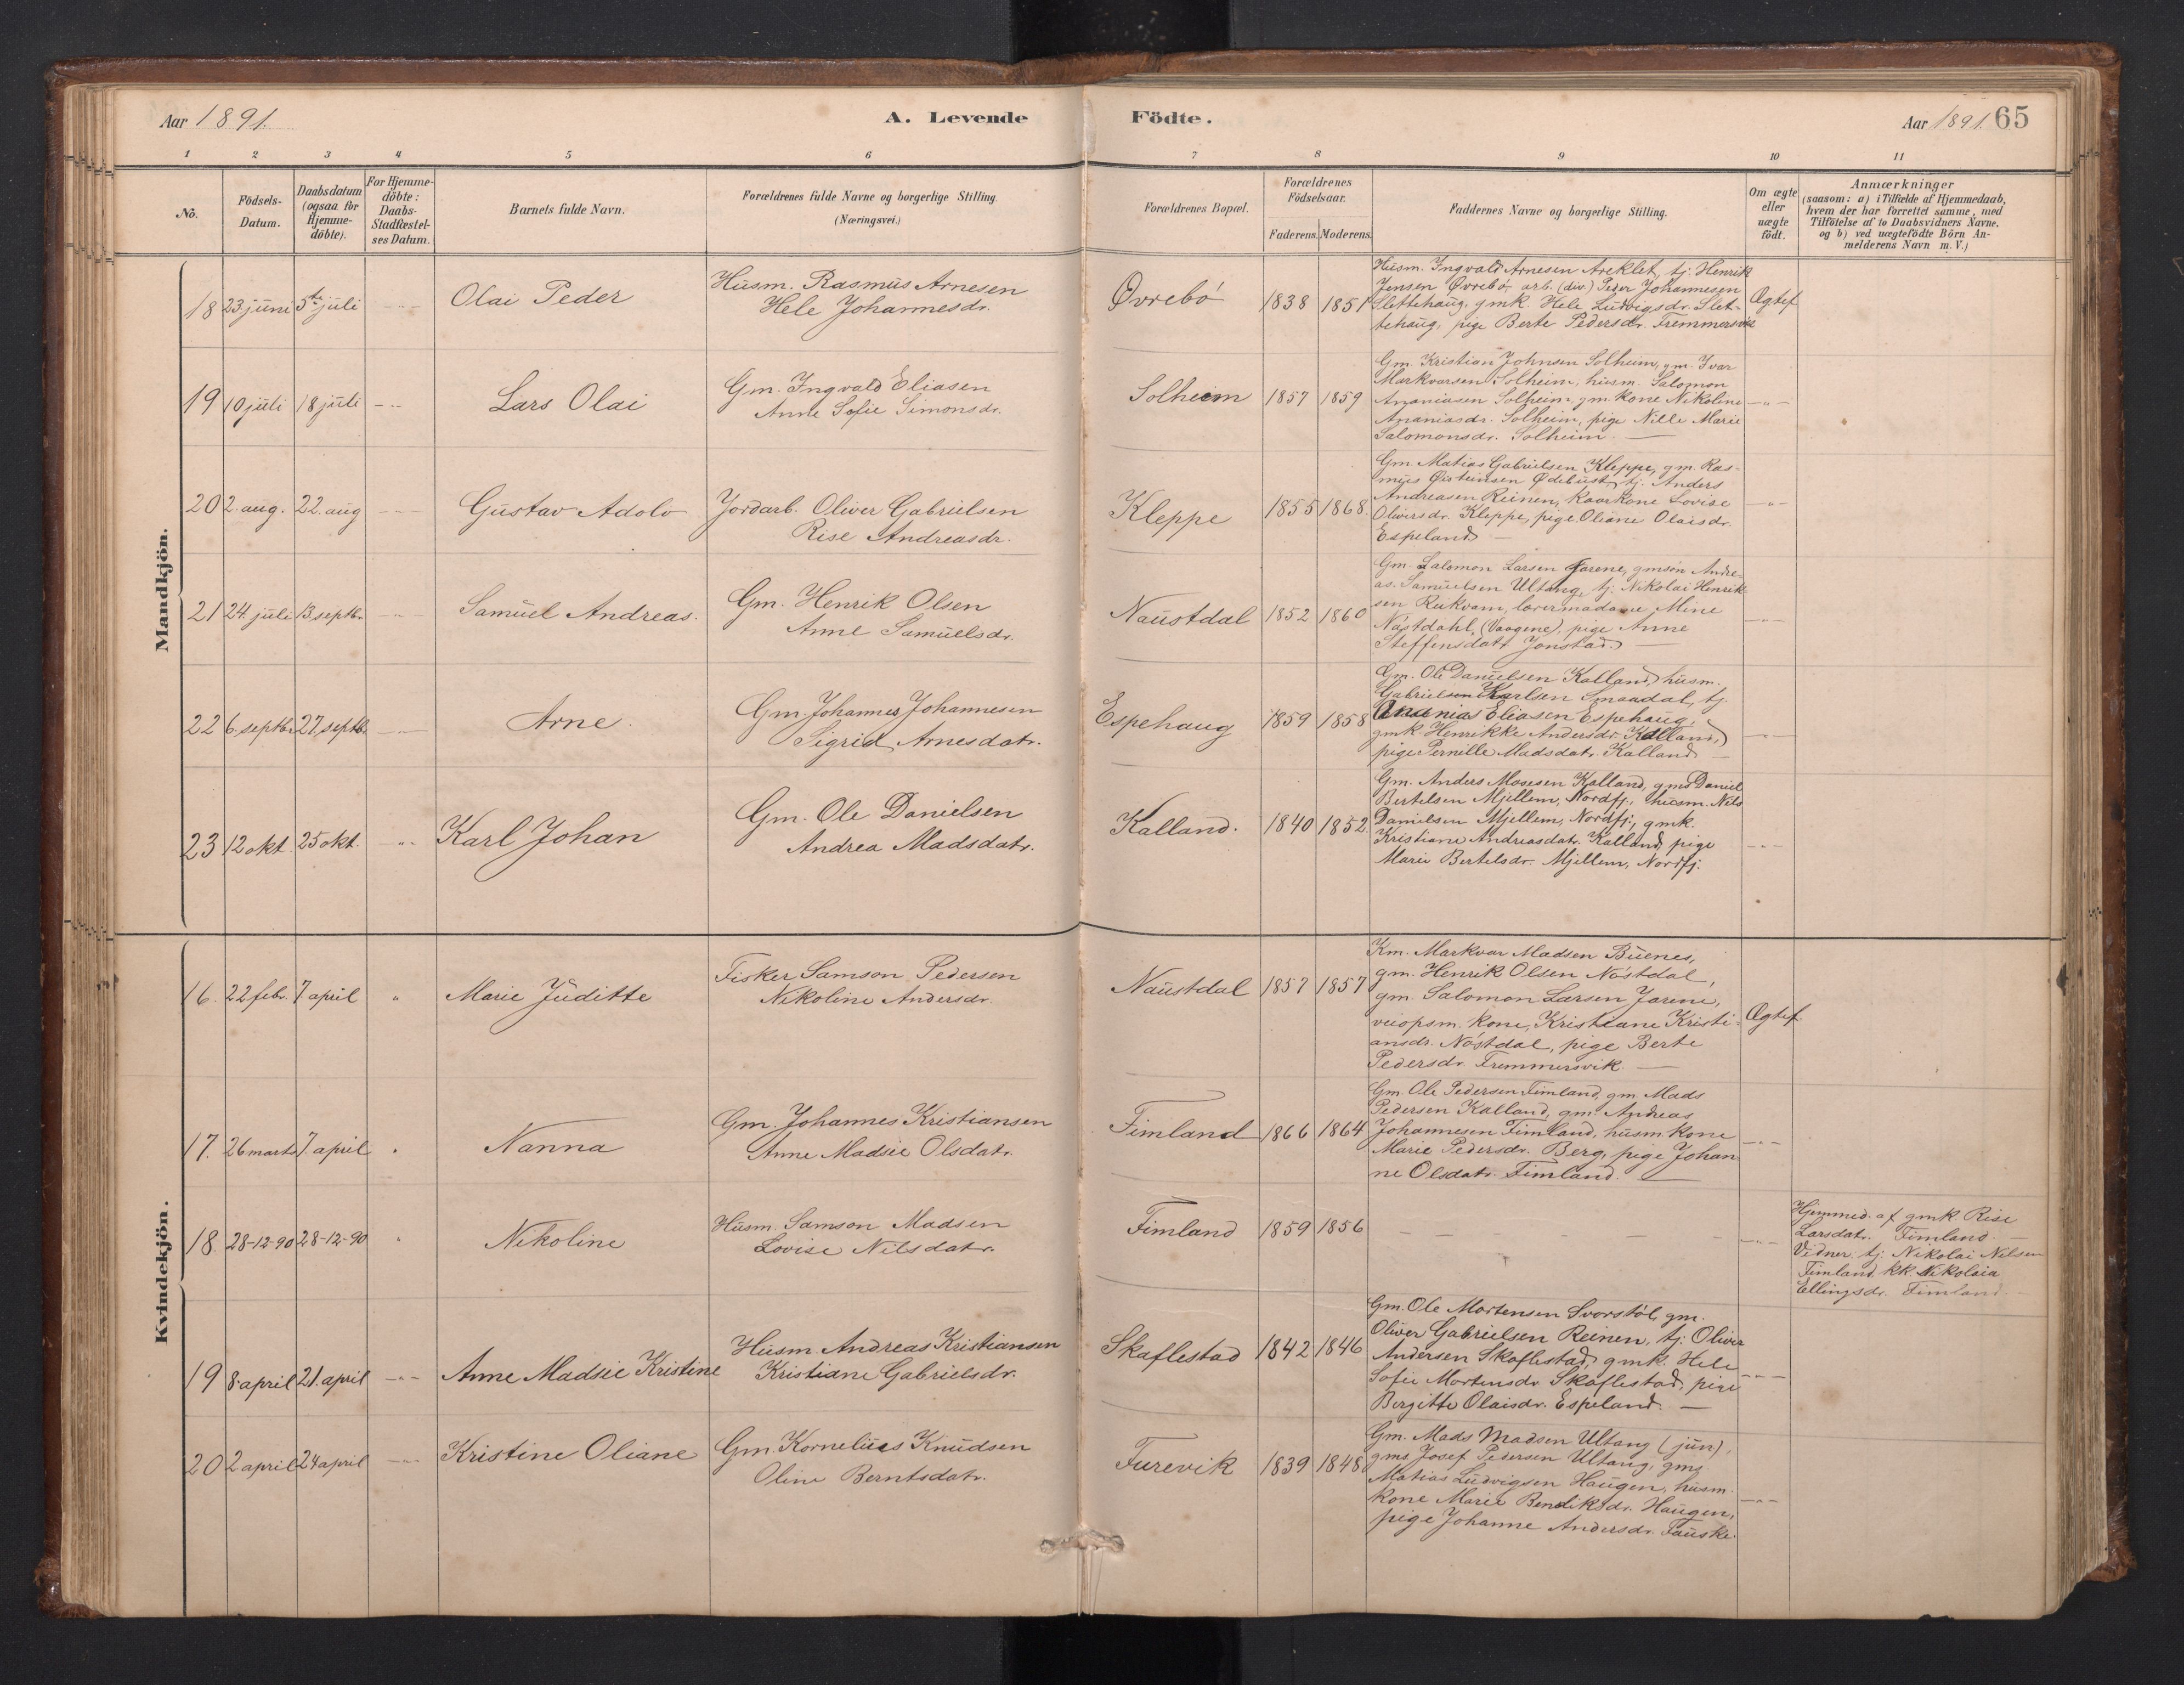 Aar 1891.
A. Levende
Födte.
Aar 1891. 65
1 2 3 4 5 6 7 8 9 10 11
No.
Födsels-
Datum.
Daabsdatum
(ogsaa for
Hjemme-
döbte).
For Hjemme-
döbte:
Daabs-
Stadfæstel-
ses Datum.
Barnets fulde Navn.
Forældrenes fulde Navne og borgerlige Stilling.
(Næringsvei.)
Forældrenes Bopæl.
Forældrenes
Födselsaar.
Faderens. Moderens.
Faddernes Navne og borgerlige Stilling.
Om ægte
eller
uægte
födt.
Anmærkninger
(saasom: a) i Tilfælde af Hjemmedaab,
hvem der har forrettet samme, med
Tilföielse af to Daabsvidners Navne.
og b) ved uægtefödte Börn An-
melderens Navn m. V.)
Mandkjön.
18 23 juni 5te juli Olai Peder
Husm. Rasmus Arnesen
Hele Johannesdr.
Øvrebö 1838 1851
Husm. Ingvald Arnesen Areklet, tj. Henrik
Jensen Øvrebö, arb. (div.) Peder Johannesen
Slettehaug, gmk. Hele Ludvigsdr. Slet-
tehaug, pige Berte Pedersdr. Fremmersvik
Ægtef
19 10 juli 18 juli -"- Lars Olai
Gm. Ingvald Eliasen
Anne Sofie Simonsdr.
Solheim 1857 1859
Gm. Kristian Johnsen Solheim, gm. Ivar
Markvarsen Solheim, husm. Salomon
Ananiasen Solheim, gm. kone Nikoline
Ananiasdr. Solheim, pige Nille Marie
Salomonsdr. Solheim. —
-"-
20 2. aug. 22. aug Gustav Adolv
Jordarb. Oliver Gabrielsen
Rise Andreasdr.
Kleppe 1855 1868.
Gm. Matias Gabrielsen Kleppe, gm. Ras-
mus Øisteinsen Ødebust, tj. Anders
Andreasen Reinen, kaarkone Lovise
Oliversdr. Kleppe, pige Oliane Olaisdr.
Espeland —
-"-
21 24. juli 13. septbr. Samuel Andreas.
Gm. Henrik Olsen
Anne Samuelsdr.
Naustdal 1852 1860
Gm. Salomon Larsen Jarene, gmsön Andre-
as Samuelsen Ultang, tj. Nikolai Henrik-
sen Rukvam, lærermadame Mine
Nöstdahl, (Vaagene), pige Anne
Steffensdatr Jonstad. —
-"-
22 6. septbr. 27. septb. Arne.
Gm. Johannes Johannesen
Sigrid Arnesdatr.
Espehaug 1859 1858
Gm. Ole Danielsen Kalland, husm.
Gabrielsen Karlsen Smaadal, tj.
Ananias Eliasen Espehaug,
gmk. Henrikke Andersdr. Kalland,
pige Pernille Madsdatr. Kalland —
-"-
23 12 okt. 25 okt. -"- Karl Johan
Gm. Ole Danielsen
Andrea Madsdatr.
Kalland. 1840 1852.
Gm. Anders Mosesen Kalland, gms Daniel
Bertelsen Mjellem, Nordfj., husm. Nils
Danielsen Mjellem, Nordfj., gmk.
Kristiane Andreasdatr. Kalland, pige
Marie Bertelsdr. Mjellem, Nordfj.
-"-
Kvindekjön.
16. 22 febr. 7 april " Marie Juditte
Fisker Samson Pedersen
Nikoline Andersdr.
Naustdal 1857 1857
Km. Markvar Madsen Buenes,
gm. Henrik Olsen Nöstdal,
gm. Salomon Larsen Jarene,
veiopsm. kone, Kristiane Kristi-
ansdr. Nöstdal, pige Berte
Pedersdr. Fremmersvik. —
Ægtef
17. 26 marts 7 april " Nanna
Gm. Johannes Kristiansen
Anne Madsie Olsdatr.
Fimland 1866 1864
Gm. Ole Pedersen Fimland, gm. Mads
Pedersen Kalland, gm. Andreas
Johannesen Fimland, husm. kone
Marie Pedersdr. Berg, pige Johan
ne Olsdatr. Fimland. —
-"-
18. 28-12-90 28-12-90 " Nikoline
Husm. Samson Madsen
Lovise Nilsdatr.
Fimland 1859 1856
— — — — —
-"-
Hjemmed. af gmk Rise
Larsdatr. Fimland. —
Vidner: tj. Nikolai Nilsen
Fimland, kk. Nikolaia
Ellingsdr. Fimland. —
19 8. april 21. april -"- Anne Madsie Kristine
Husm. Andreas Kristiansen
Kristiane Gabrielsdr.
Skaflestad 1842 1846
Gm. Ole Mortensen Svorstöl, gm.
Oliver Gabrielsen Reinen, tj. Oliver
Andersen Skaflestad, gmk. Hele
Sofie Mortensdr Skaflestad, pige
Birgitte Olaisdr. Espeland. —
-"-
20 2 april 24 april -"- Kristine Oliane
Gm. Kornelius Knudsen
Oline Berntsdatr.
Furevik 1839 1848
Gm. Mads Madsen Ultang (jun),
gms Josef Pedersen Ultang, gms
Matias Ludvigsen Haugen, husm.
kone Marie Bendiksdr. Haugen,
pige Johanne Andersdr. Fauske.
-"-